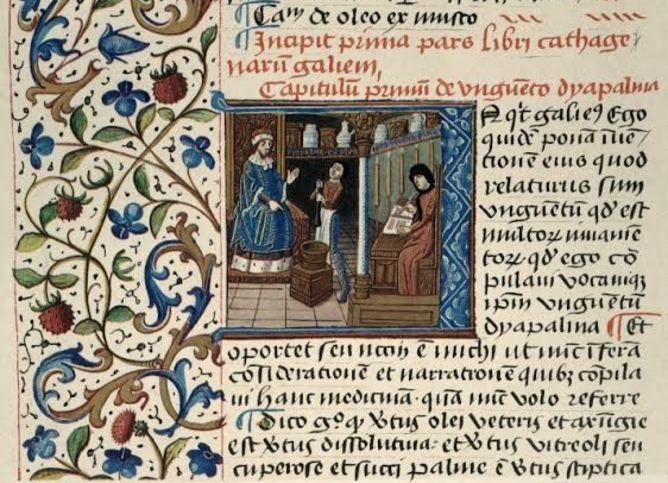 Cam̄ de oleo ex musto
Incipit prima pars libri cathage
narū galieni
Capitulū primū de vnguēto dyapalma
Nqͥt galieꝰ Ego
quidē ponā īuē
ctionē eius quod
relaturus sum
vnguētū qd̓ est
multoꝝ iuuamē
toꝝ qd̓ ego cō
pilaui vocauiqꝫ
ipm̄ vnguētū
dyapalma ¶ Et
oportet seu ē michi ut nūc īferā
cōsideratione et narratione quibꝫ cōpila
ui hanc medicinā quā nūc volo referre
¶ Dico gͦ qꝫ v̓tus olei veteris et axūgie
est v̓tus dissolutiua et v̓tus vitreoli seu
cuperose et succi palme ē v̓tus stiptica